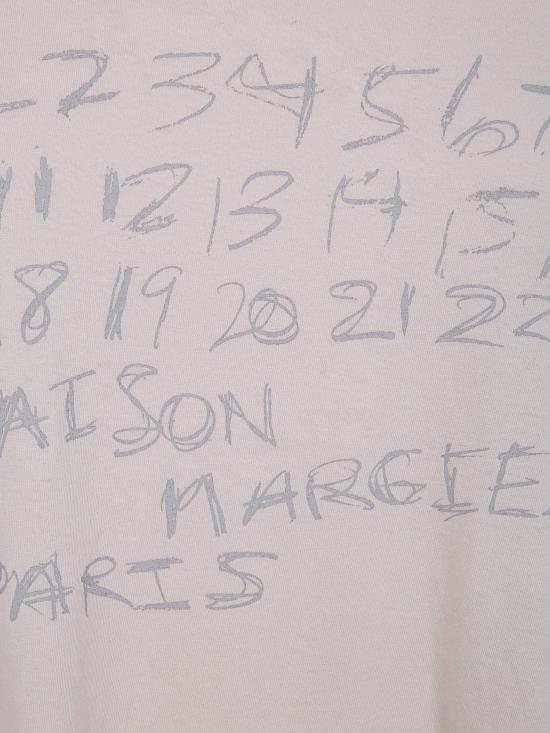 2 3 4 5 6 7
11 12 13 14 15
18 19 20 21 22 2
AISON
MARGIE
PARIS